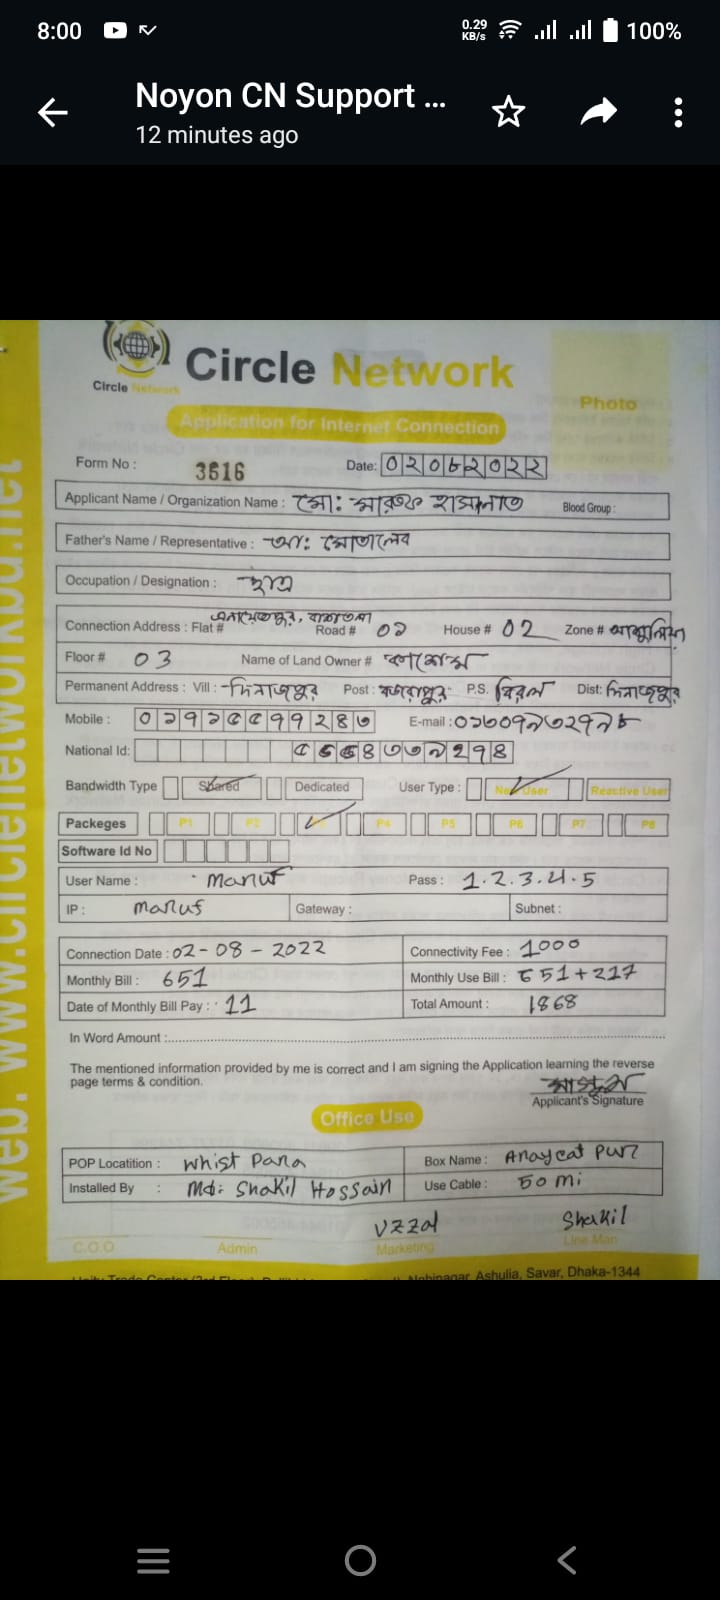 8:00 0.29 KB/s 100%
Noyon CN Support ...
12 minutes ago
Circle Network
Circle Network
Photo
Application for Internet Connection
Form No : 3516 Date: ০২০৮২০২২
Applicant Name / Organization Name : মো: মারুফ হাসনাত Blood Group :
Father's Name / Representative : আ: মোতালেব
Occupation / Designation : ছাত্র
Connection Address : Flat # এনায়েতপুর, Road # ০১ House # 02 Zone # আশুলিয়া
Floor # 03 Name of Land Owner # কাশেম
Permanent Address : Vill : দিনাজপুর Post : P.S. বিরল Dist: দিনাজপুর
Mobile : E-mail :
National Id:
Bandwidth Type Shared Dedicated User Type : New User Reactive User
Packeges P1 P2 P4 P5 P6 P7 P8
Software Id No
User Name : Maruf Pass : 1.2.3.4.5
IP : Maruf Gateway : Subnet :
Connection Date : 02-08-2022 Connectivity Fee : 1000
Monthly Bill : 651 Monthly Use Bill : 651+217
Date of Monthly Bill Pay : 11 Total Amount : 1868
In Word Amount :
The mentioned information provided by me is correct and I am signing the Application learning the reverse
page terms & condition.
Applicant's Signature
Office Use
POP Locatition : Whist Para Box Name : Anaycat Pur
Installed By : Md: Shakil Hossain Use Cable : 50 mi
Uzzal Shakil
C.O.O Admin Marketing Line Man
Nobinagar, Ashulia, Savar, Dhaka-1344
web: www.circlenetworkbd.net